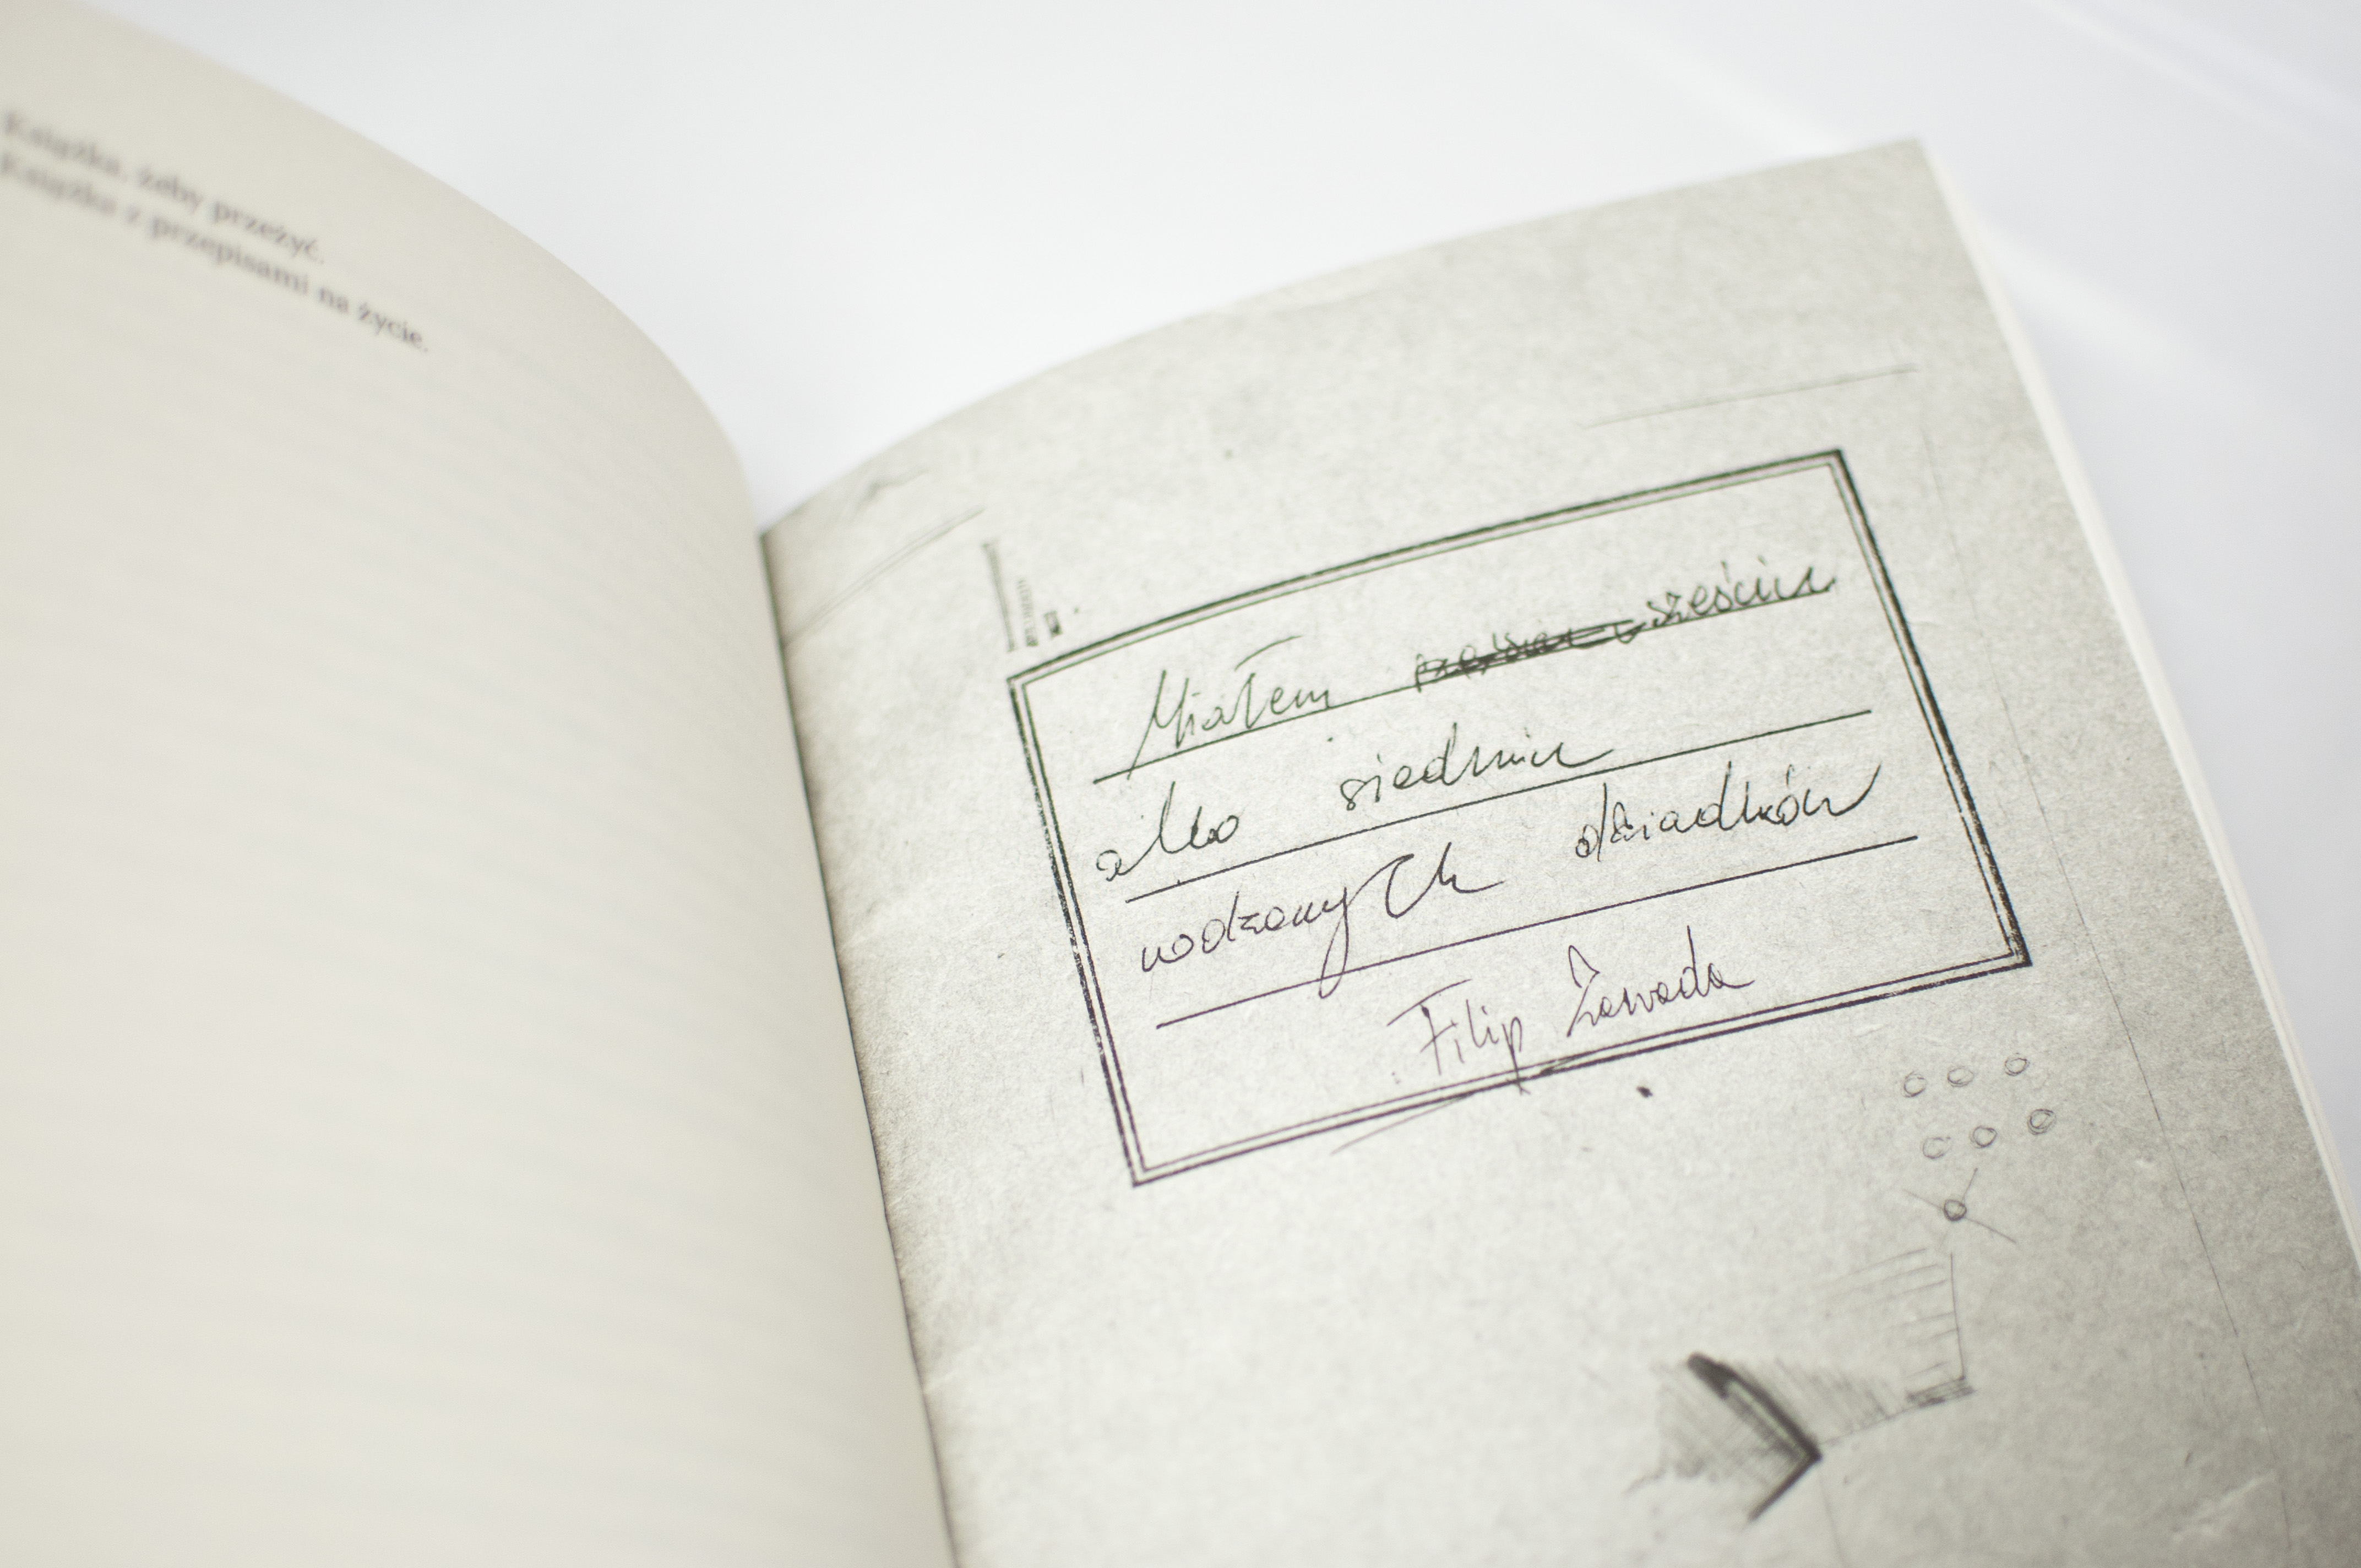 Książka, żeby przeżyć.
Książka z przepisami na życie.
Miałem sześciu
albo siedmiu
rodzonych dziadków
Filip Zawada